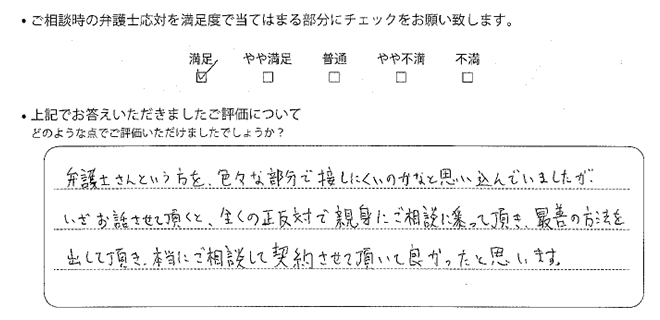 • ご相談時の弁護士応対を満足度で当てはまる部分にチェックをお願い致します。
満足 やや満足 普通 やや不満 不満
☑ □ □ □ □
• 上記でお答えいただきましたご評価について
どのような点でご評価いただけましたでしょうか？
弁護士さんという方を、色々な部分で接しにくいのかなと思い込んでいましたが、
いざお話させて頂くと、全くの正反対で親身にご相談に乗って頂き、最善の方法を
出して頂き、本当にご相談して契約させて頂いて良かったと思います。